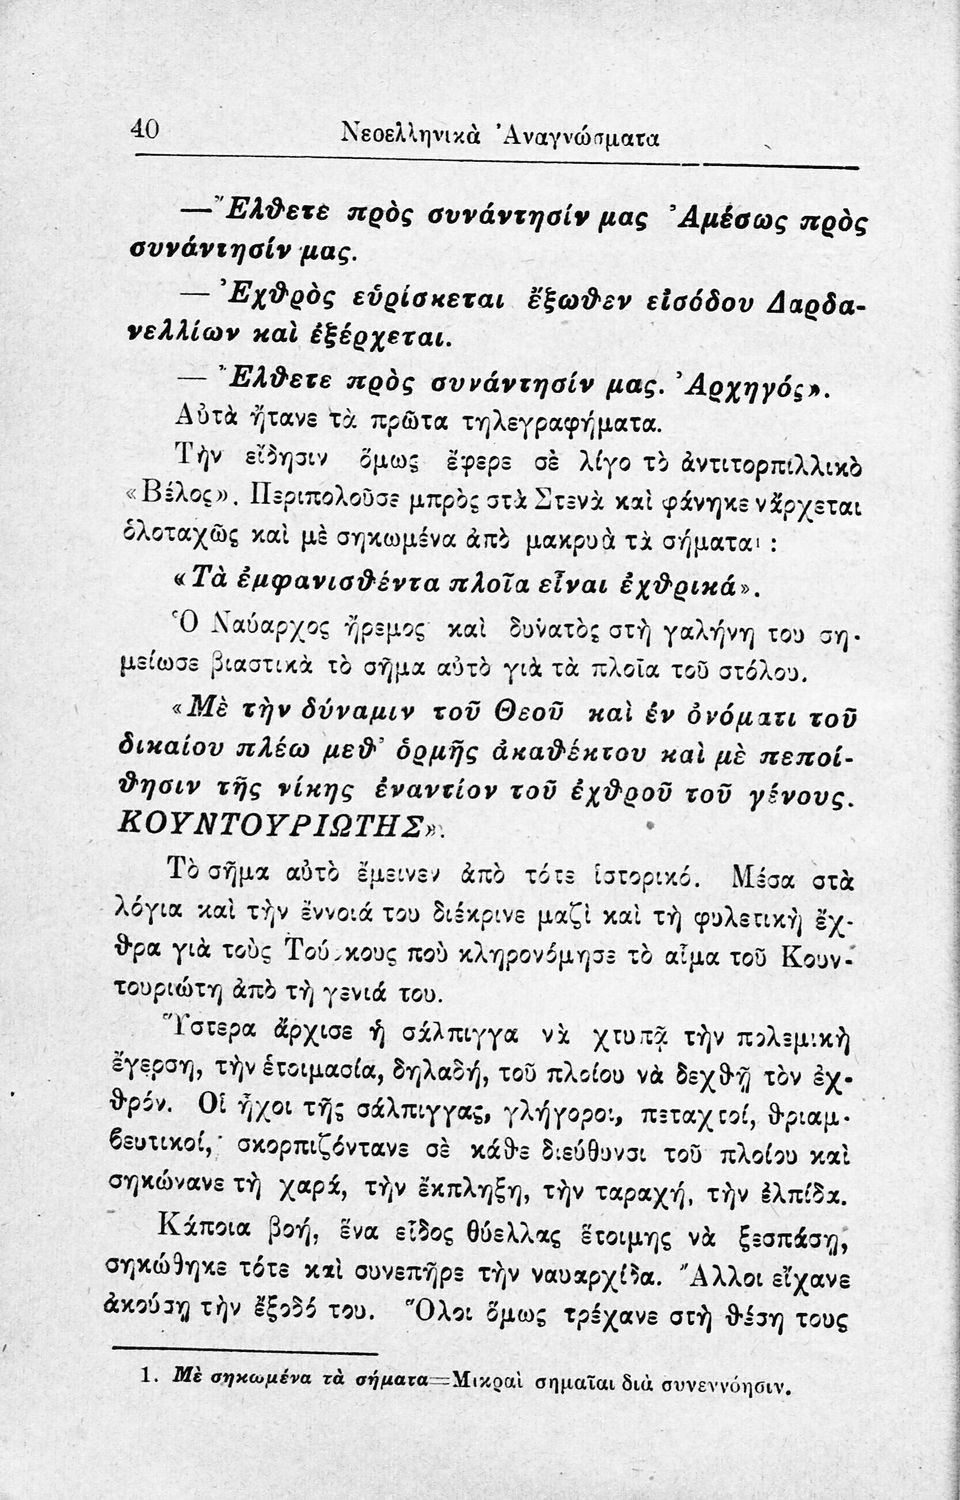 40 Νεοελληνικὰ Ἀναγνώσματα
—Ἔλθετε πρὸς συνάντησίν μας Ἀμέσως πρὸς
συνάντησίν μας.
— Ἐχθρὸς εὑρίσκεται ἔξωθεν εἰσόδου Δαρδα-
νελλίων καὶ ἐξέρχεται.
— Ἔλθετε πρὸς συνάντησίν μας. Ἀρχηγός».
Αὐτὰ ἤτανε τὰ πρῶτα τηλεγραφήματα.
Τὴν εἴδησιν ὅμως ἔφερε σὲ λίγο τὸ ἀντιτορπιλλικὸ
«Βέλος». Περιπολοῦσε μπρὸς στὰ Στενὰ καὶ φάνηκε νἄρχεται
ὁλοταχῶς καὶ μὲ σηκωμένα ἀπὸ μακρυὰ τὰ σήματα¹ :
«Τὰ ἐμφανισθέντα πλοῖα εἶναι ἐχθρικά».
Ὁ Ναύαρχος ἤρεμος καὶ δυνατὸς στὴ γαλήνη του ση-
μείωσε βιαστικὰ τὸ σῆμα αὐτὸ γιὰ τὰ πλοῖα τοῦ στόλου.
«Μὲ τὴν δύναμιν τοῦ Θεοῦ καὶ ἐν ὀνόματι τοῦ
δικαίου πλέω μεθ' ὁρμῆς ἀκαθέκτου καὶ μὲ πεποί-
θησιν τῆς νίκης ἐναντίον τοῦ ἐχθροῦ τοῦ γένους.
ΚΟΥΝΤΟΥΡΙΩΤΗΣ».
Τὸ σῆμα αὐτὸ ἔμεινεν ἀπὸ τότε ἱστορικό. Μέσα στὰ
λόγια καὶ τὴν ἔννοιά του διέκρινε μαζὶ καὶ τὴ φυλετικὴ ἔχ-
θρα γιὰ τοὺς Τούρκους ποὺ κληρονόμησε τὸ αἷμα τοῦ Κουν-
τουριώτη ἀπὸ τὴ γενιά του.
Ὕστερα ἄρχισε ἡ σάλπιγγα νὰ χτυπᾷ τὴν πολεμικὴ
ἔγερση, τὴν ἑτοιμασία, δηλαδή, τοῦ πλοίου νὰ δεχθῇ τὸν ἐχ-
θρόν. Οἱ ἦχοι τῆς σάλπιγγας, γλήγοροι, πεταχτοί, θριαμ-
βευτικοί, σκορπιζόντανε σὲ κάθε διεύθυνσι τοῦ πλοίου καὶ
σηκώνανε τὴ χαρά, τὴν ἔκπληξη, τὴν ταραχή, τὴν ἐλπίδα.
Κάποια βοή, ἕνα εἶδος θύελλας ἕτοιμης νὰ ξεσπάσῃ,
σηκώθηκε τότε καὶ συνεπῆρε τὴν ναυαρχίδα. Ἄλλοι εἴχανε
ἀκούσῃ τὴν ἔξοδό του. Ὅλοι ὅμως τρέχανε στὴ θέση τους
1. Μὲ σηκωμένα τὰ σήματα=Μικραὶ σημαῖαι διὰ συνεννόησιν.